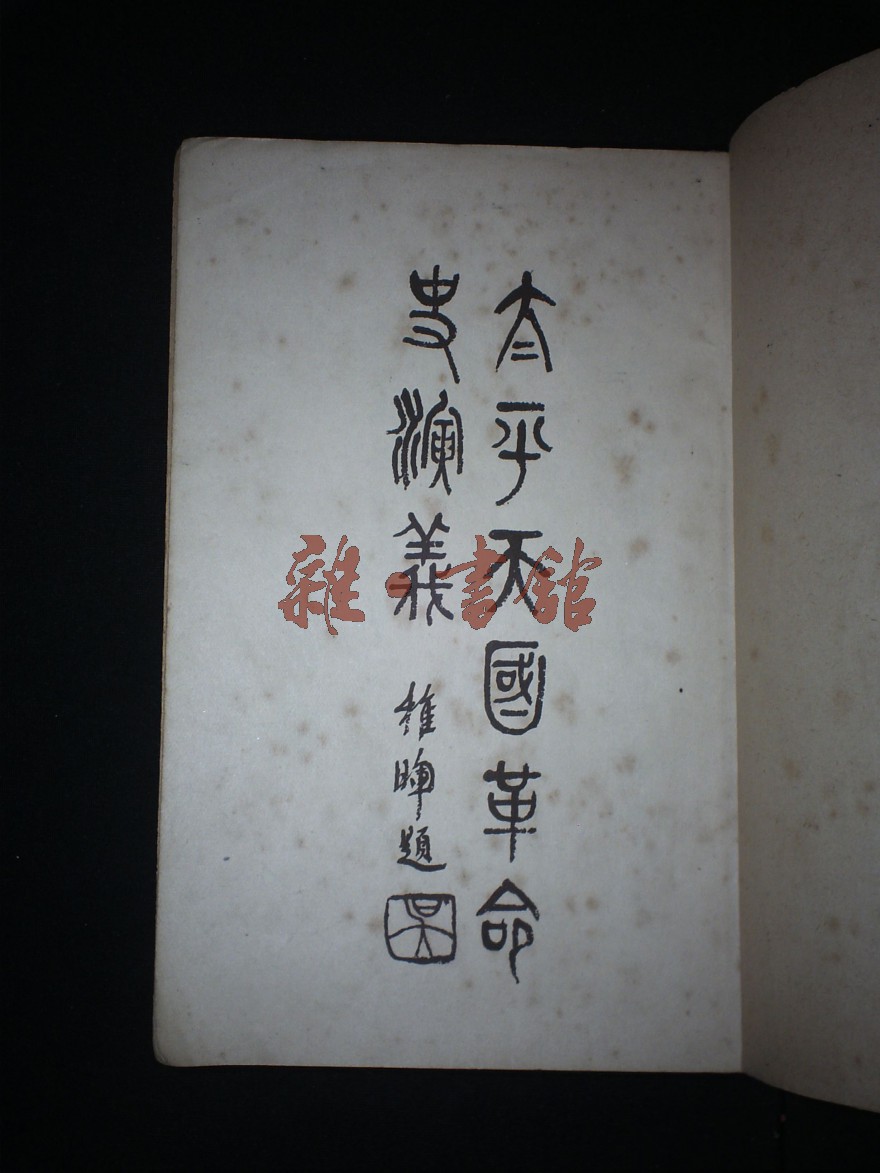 太平天國革命
史演義
稚暉題
吳
雜·書館